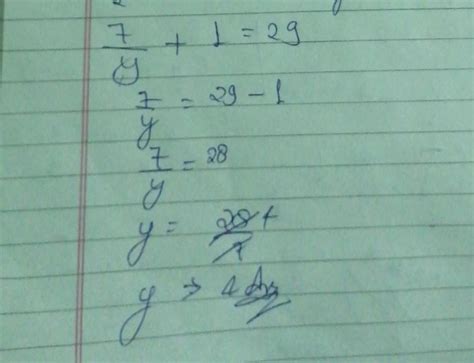 7/y + 1 = 29
7/y = 29 - 1
7/y = 28
y = 28/7 4
y → 4